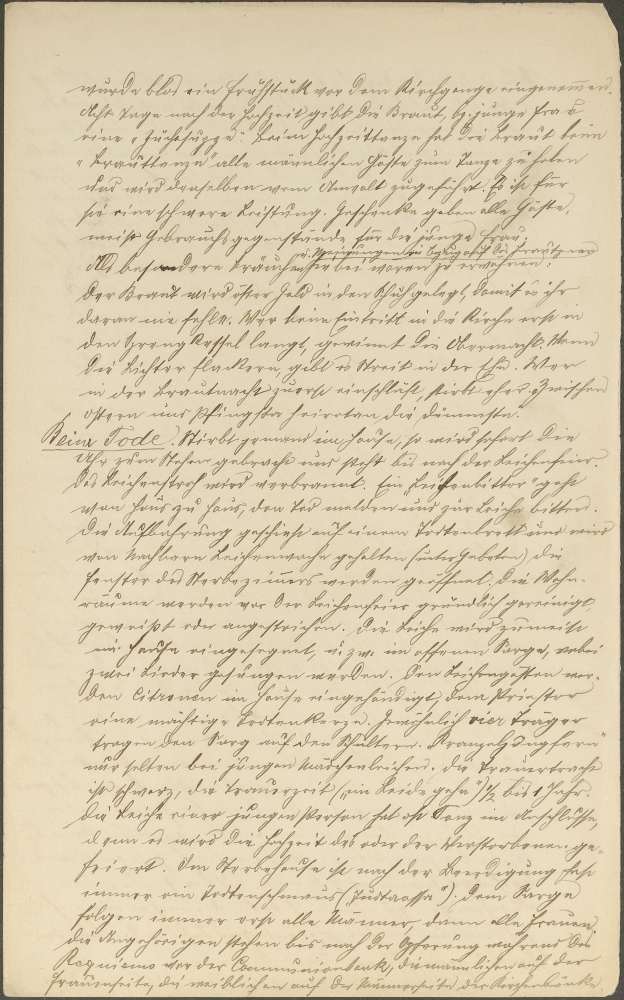 wurde blos ein Frühstück vor dem Kirchgange eingenommen.
Acht Tage nach der Hochzeit gibt die Braut, bz. junge Frau
eine „ Beim Hochzeittanze hat die Braut beim
„Brauttanze" alle männlichen Gäste zum Tanze zu holen
und wird denselben vom Anwalt zugeführt. Es ist für
sie eine schwere Leistung. Geschenke geben alle Gäste,
meist Gebrauchsgegenstände für die junge Frau.
u. Meinungen in bezug auf die
Als besondere Bräuche hiebei wären zu erwähnen:
Der Braut wird öfter Geld in den Schuh gelegt, damit es ihr
daran nie fehle. Wer beim Eintritt in die Kirche erst in
den Sprengkessel langt, gewinnt die Obermacht. Wenn
die Lichter flackern, gibt es Streit in der Ehe. Wer
in der Brautnacht zuerst einschläft, stirbt eher. Zwischen
Ostern und Pfingsten heiraten die Dümmsten.
Beim Tode. Stirbt jemand im Hause, so wird sofort die
Uhr zum Stehen gebracht und steht bis nach der Leichenfeier.
Das Leichenstroh wird verbrannt. Ein „Leichenbitter" geht
von Haus zu Haus, den Tod melden und zur Leiche bitten.
Die Aufbahrung geschieht auf einem Todtenbrett und wird
von Nachbarn Leichenwache gehalten (unter Gebeten), die
Fenster des Sterbezimmers werden geöffnet. Die Wohn-
räume werden vor der Leichenfeier gründlich gereinigt,
geweißt oder angestrichen. Die Leiche wird zumeist
im Hause eingesegnet, u. zw. im offenen Sarge, wobei
zwei Lieder gesungen werden. Den Leichengästen wer-
den Citronen im Hause eingehändigt, dem Priester
eine mächtige Todtenkerze. Gewöhnlich vier Träger
tragen den Sarg auf den Schultern.
nur selten bei jungen Mädchenleichen. Die Trauertracht
ist schwarz, die Trauerzeit („in Leide gehn") ½ bis 1 Jahr.
Die Leiche einer jungen Person hat oft Tanz im Anschlusse,
denn es wird die Hochzeit des oder der Verstorbenen ge-
feiert. Im Sterbehause ist nach der Beerdigung fast
immer ein Todtenschmaus ( Dem Sarge
folgen immer erst alle Männer, dann alle Frauen.
Die Angehörigen stehen bis nach der Opferung während des
Requiems vor der Communionbank, die männlichen auf der
Frauenseite, die weiblichen auf der Männerseite der Kirchenbänke.